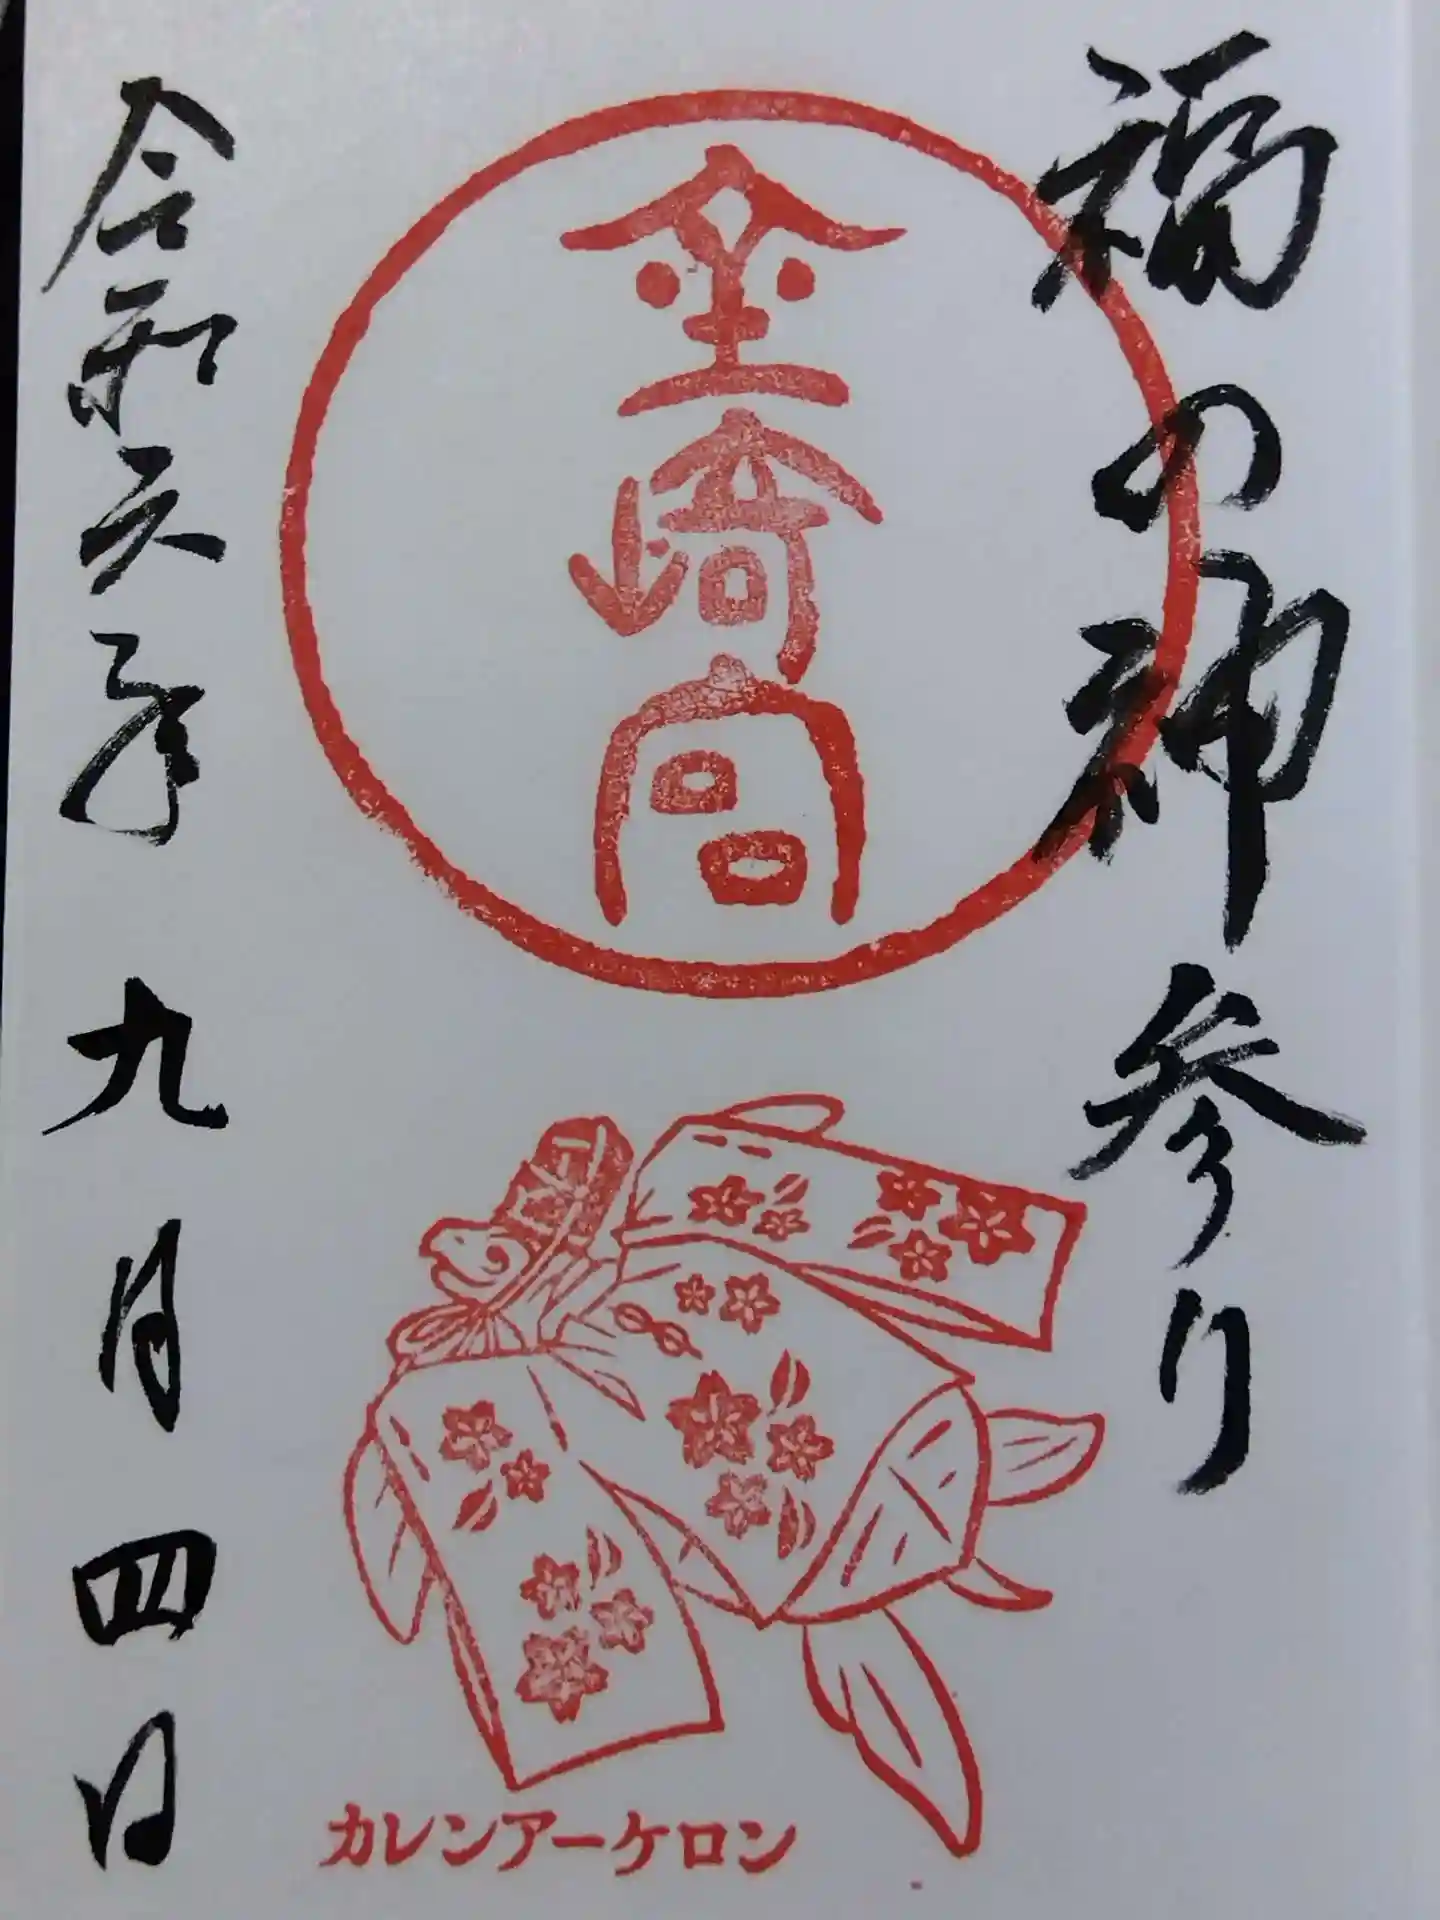 福の神参り
金崎宮
カレンアーケロン
令和六年九月四日